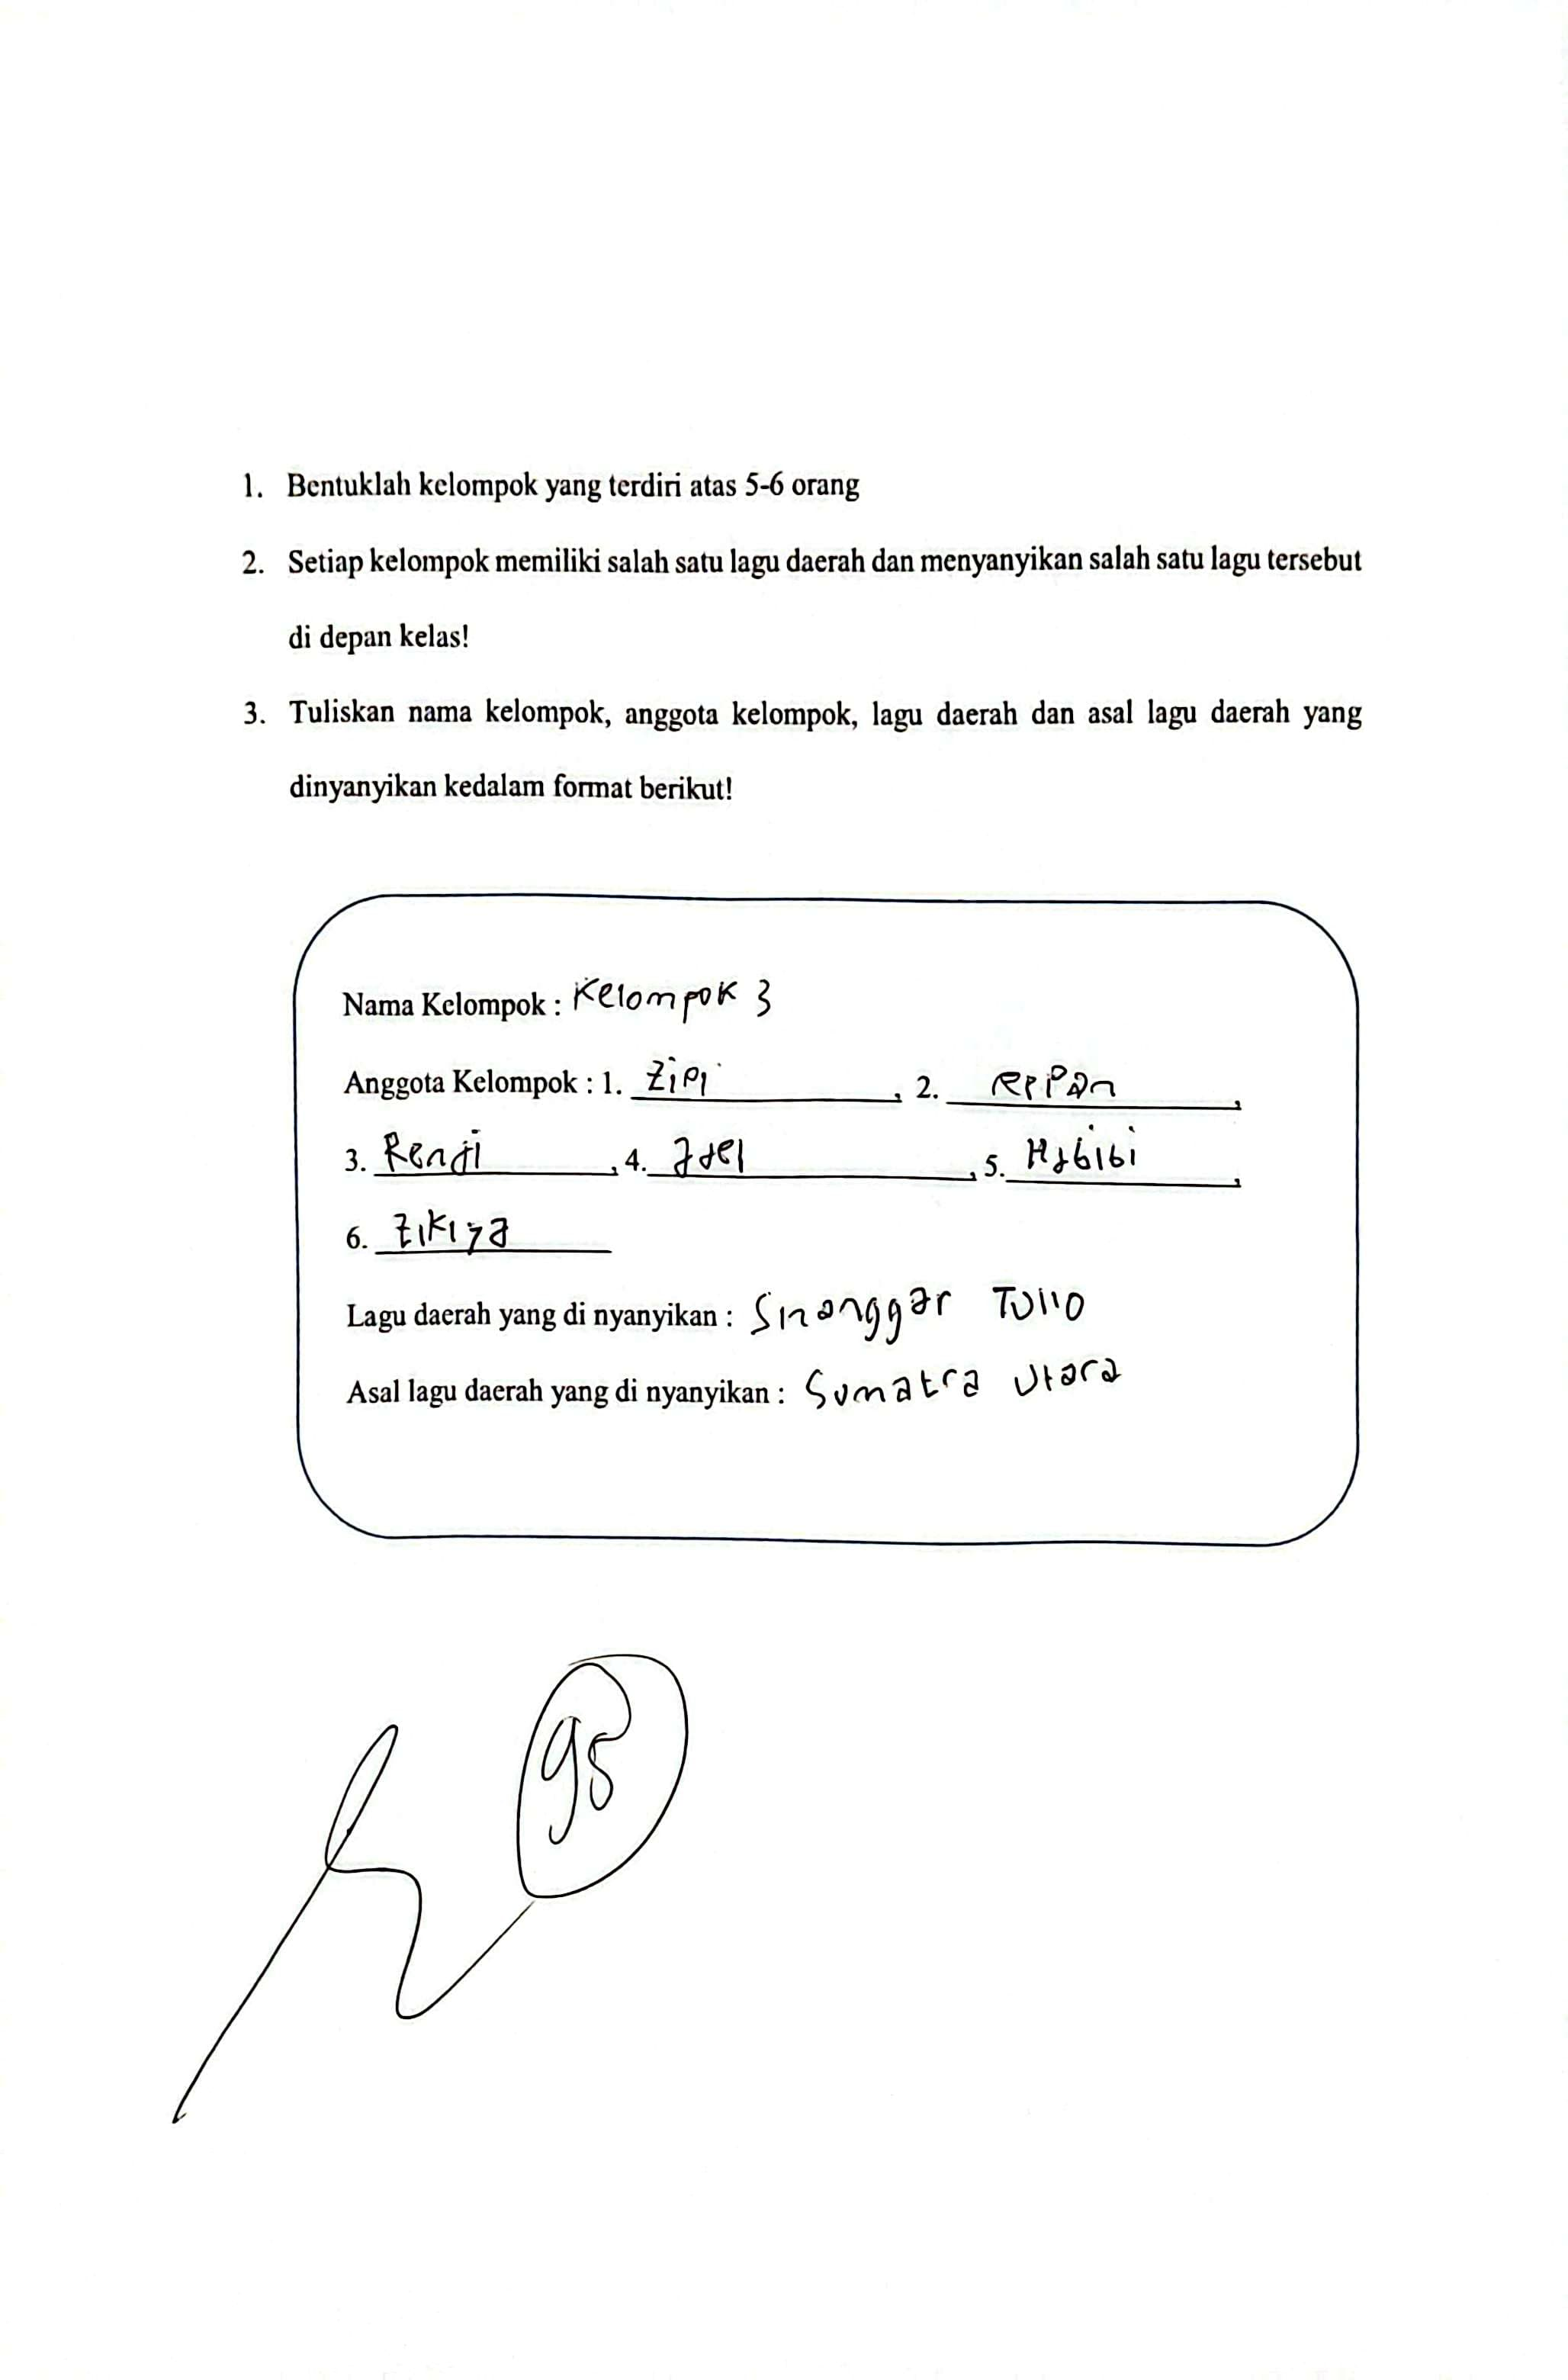 1. Bentuklah kelompok yang terdiri atas 5-6 orang
2. Setiap kelompok memiliki salah satu lagu daerah dan menyanyikan salah satu lagu tersebut
di depan kelas!
3. Tuliskan nama kelompok, anggota kelompok, lagu daerah dan asal lagu daerah yang
dinyanyikan kedalam format berikut!
Nama Kelompok : Kelompok 3
Anggota Kelompok : 1. Zipi, 2. Reppan,
3. Renji, 4. Jael, 5. Habibi,
6. Zikiya
Lagu daerah yang di nyanyikan : Sinanggar Tullo
Asal lagu daerah yang di nyanyikan : Sumatra Utara
95